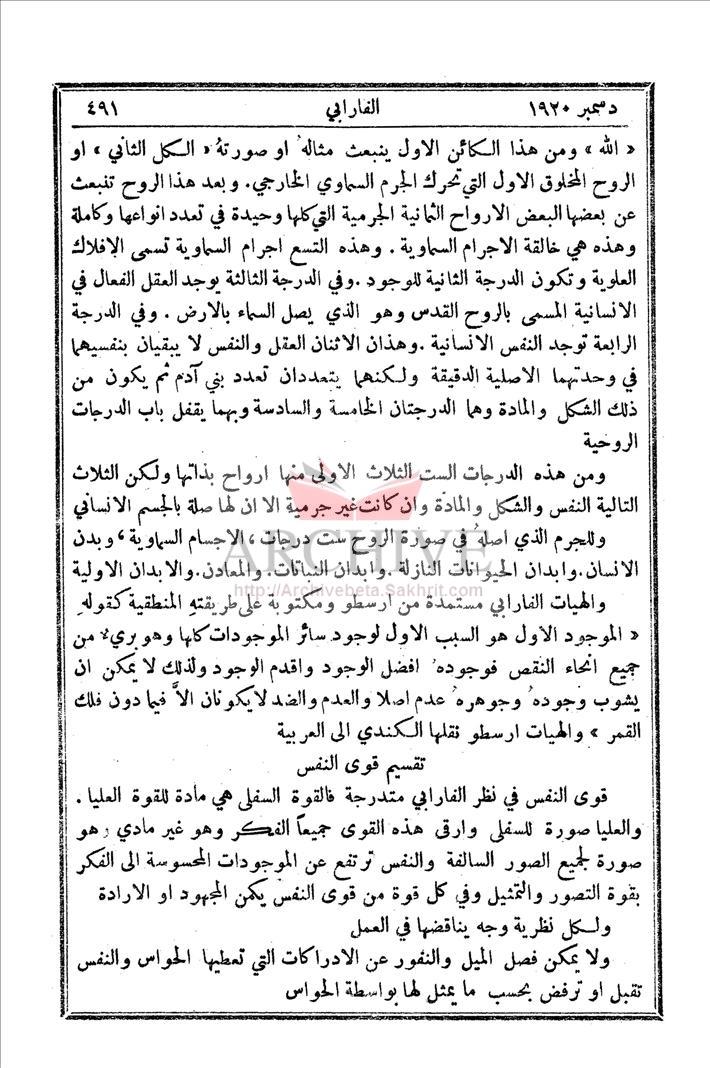 دسمبر ١٩٢٠ الفارابي ٤٩١
« الله » ومن هذا الكائن الاول ينبعث مثاله او صورتهُ « الكل الثاني » او
الروح المخلوق الاول التي تحرك الجرم السماوي الخارجي . وبعد هذا الروح تنبعث
عن بعضها البعض الارواح الثمانية الجرمية التي كلها وحيدة في تعدد انواعها وكاملة
وهذه هي خالقة الاجرام السماوية . وهذه التسع اجرام السماوية تسمى الافلاك
العلوية وتكون الدرجة الثانية للوجود . وفي الدرجة الثالثة يوجد العقل الفعال في
الانسانية المسمى بالروح القدس وهو الذي يصل السماء بالارض . وفي الدرجة
الرابعة توجد النفس الانسانية . وهذان الاثنان العقل والنفس لا يبقيان بنفسيهما
في وحدتهما الاصلية الدقيقة ولكنهما يتعددان تعدد بني آدم ثم يكون من
ذلك الشكل والمادة وهما الدرجتان الخامسة والسادسة وبهما يقفل باب الدرجات
الروحية
ومن هذه الدرجات الست الثلاث الاولى منها ارواح بذاتها ولكن الثلاث
التالية النفس والشكل والمادة وان كانت غير جرمية الا ان لها صلة بالجسم الانساني
وللجرم الذي اصلهُ في صورة الروح ست درجات ، الاجسام السماوية ، وبدن
الانسان . وابدان الحيوانات النازلة . وابدان النباتات . والمعادن . والابدان الاولية
ARCHIVE
http://Archivebeta.Sakhrit.com
والهيات الفارابي مستمدة من ارسطو ومكتوبة على طريقتهِ المنطقية كقولهِ
« الموجود الاول هو السبب الاول لوجود سائر الموجودات كلها وهو بريء من
جميع انحاء النقص فوجودهُ افضل الوجود واقدم الوجود ولذلك لا يمكن ان
يشوب وجودهُ وجوهرهُ عدم اصلا والعدم والضد لا يكونان الاَّ فيما دون فلك
القمر » والهيات ارسطو نقلها الكندي الى العربية
تقسيم قوى النفس
قوى النفس في نظر الفارابي متدرجة فالقوة السفلى هي مادة للقوة العليا .
والعليا صورة للسفلى وارقى هذه القوى جميعاً الفكر وهو غير مادي وهو
صورة لجميع الصور السالفة والنفس ترتفع عن الموجودات المحسوسة الى الفكر
بقوة التصور والتمثيل وفي كل قوة من قوى النفس يكمن المجهود او الارادة
ولكل نظرية وجه يناقضها في العمل
ولا يمكن فصل الميل والنفور عن الادراكات التي تعطيها الحواس والنفس
تقبل او ترفض بحسب ما يمثل لها بواسطة الحواس